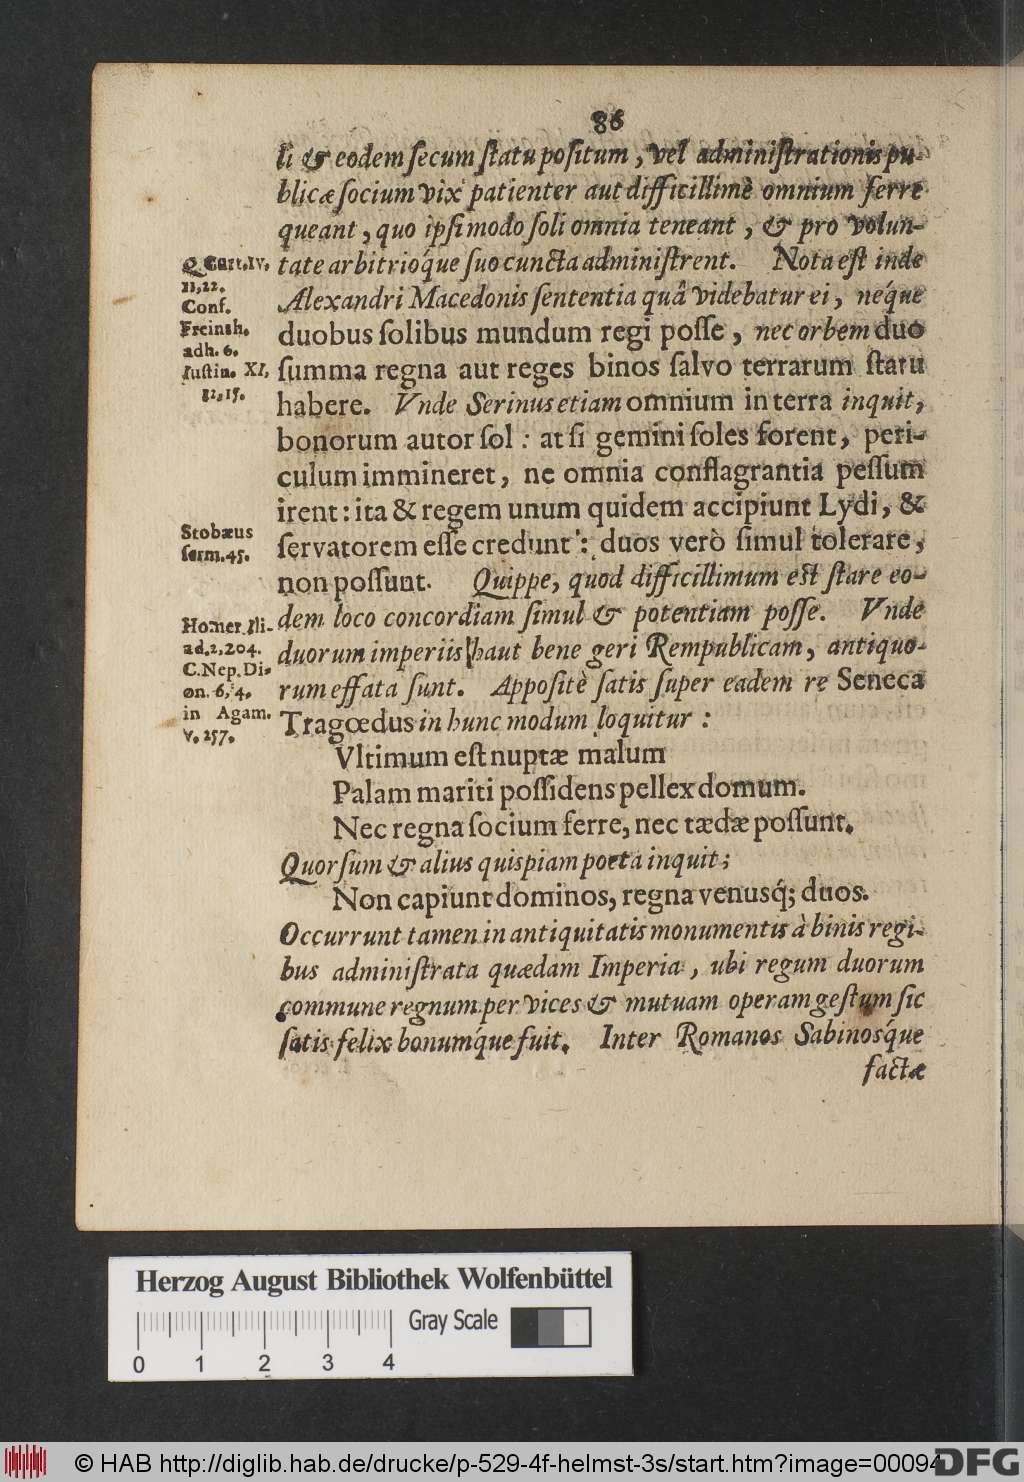 86
li & eodem ſecum ſtatu poſitum, vel adminiſtrationis pu-
blicæ ſocium vix patienter aut difficillimè omnium ferre
queant, quo ipſi modo ſoli omnia teneant, & pro volun-
tate arbitrióque ſuo cuncta adminiſtrent. Nota eſt inde
Alexandri Macedonis ſententia quâ videbatur ei, néque
duobus ſolibus mundum regi poſſe, nec orbem duo
ſumma regna aut reges binos ſalvo terrarum ſtatu
habere. Vnde Serinus etiam omnium in terra inquit,
bonorum autor ſol: at ſi gemini ſoles forent, peri-
culum immineret, ne omnia conflagrantia peſſum
irent: ita & regem unum quidem accipiunt Lydi, &
ſervatorem eſſe credunt: duos verò ſimul tolerare,
non poſſunt. Quippe, quod difficillimum est ſtare eo-
dem loco concordiam ſimul & potentiam poſſe. Vnde
duorum imperiis haut bene geri Rempublicam, antiquo-
rum effata ſunt. Appoſitè ſatis ſuper eadem re Seneca
Tragœdus in hunc modum loquitur:
Vltimum eſt nuptæ malum
Palam mariti poſſidens pellex domum.
Nec regna ſocium ferre, nec tædæ poſſunt.
Quorſum & alius quispiam poeta inquit;
Non capiunt dominos, regna venusq́; duos.
Occurrunt tamen in antiquitatis monumentis à binis regi-
bus adminiſtrata quædam Imperia, ubi regum duorum
commune regnum per vices & mutuam operam geſtum ſic
ſatis felix bonumq́ue fuit. Inter Romanos Sabinosq́ue
factæ
Q Curt. IV.
11, 22.
Conf.
Freinsh.
adh. 6.
Iuſtin. XI,
12, 15.
Stobæus
ſerm. 45.
Homer Ili-
ad. 2, 204.
C. Nep. Di-
on. 6, 4.
in Agam.
v. 257.
Herzog August Bibliothek Wolfenbüttel
Gray Scale
0 1 2 3 4
© HAB http://diglib.hab.de/drucke/p-529-4f-helmst-3s/start.htm?image=00094
DFG